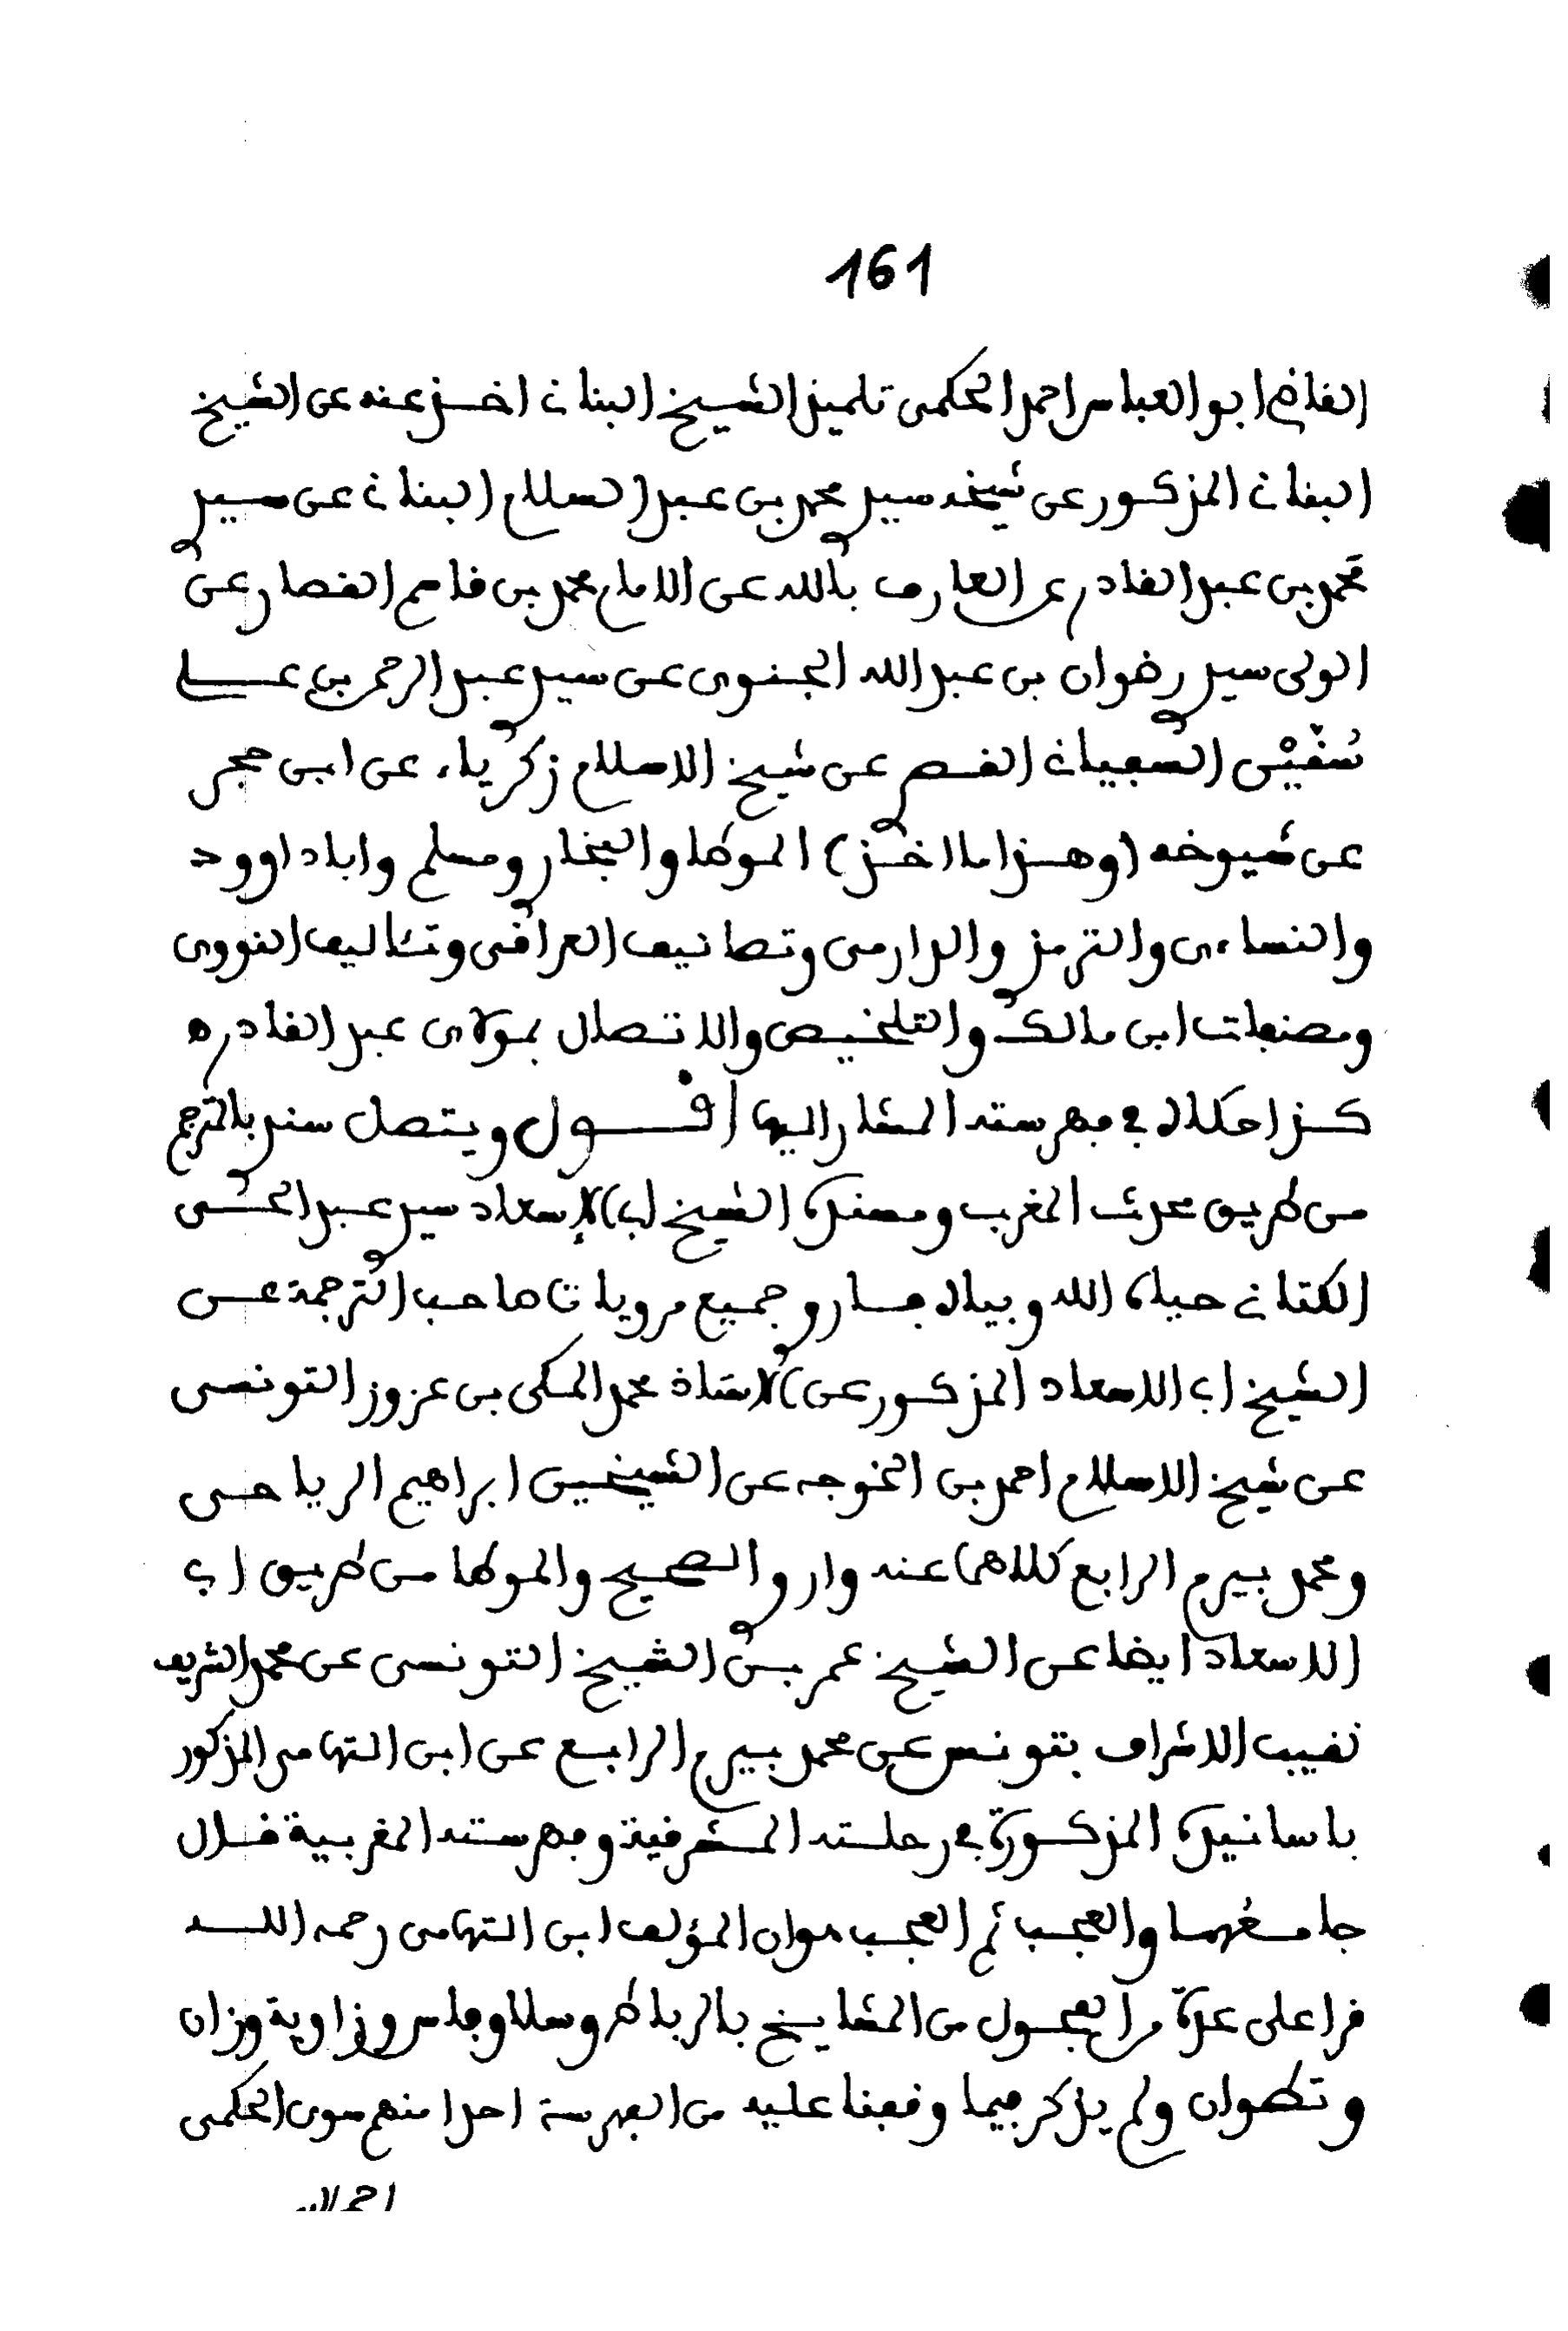 161
القاضي ابو العباس احمد الحكمى تلميذ الشيخ البنانى اخذ عنه عن الشيخ
البنانى المذكور عن شيخه سيدي محمد بن عبد السلام البنانى عن سيدي
محمد بن عبد القادر عن العارف بالله عن الامام محمد بن قاسم القصار عن
الولى سيدي رضوان بن عبد الله الجنوى عن سيدي عبد الرحمن بن علي
سُقَّيْن السفيانى القصري عن شيخ الاسلام زكرياء عن ابن حجر
عن شيوخه (وهذا ما اخذ) الموطا والبخاري ومسلم وابا داوود
والنساءى والترمذي والدارمى وتصانيف العراقى وتئاليف النووى
ومصنفات ابن مالك والتلخيص والاتصال بمولاى عبد القادر ه
كذا حكاه في فهرسته المشار اليها اقول ويتصل سندي بالمترجم
من طريق محدث المغرب ومسنده الشيخ ابى الإسعاد سيدي عبد الحى
الكتانى حياه الله وبياه فساروي جميع مرويات صاحب الترجمة عن
الشيخ ابى الاسعاد المذكور عن الاستاذ محمد المكى بن عزوز التونسى
عن شيخ الاسلام احمد بن الخوجه عن الشيخين ابراهيم الرياحى
ومحمد بيرم الرابع كلاهما عنه واروي الصحيح والموطا من طريق ابى
الاسعاد ايضا عن الشيخ عمر بن الشيخ التونسى عن محمد الشريف
نقيب الاشراف بتونس عن محمد بيرم الرابع عن ابن التهامى المذكور
باسانيده المذكورة في رحلته المشرقية وفهرسته المغربية قال
جامعهما والعجب ثم العجب هو ان المؤلف ابن التهامى رحمه الله
قرا على عدة من الفحول من المشايخ بالرباط وسلا وفاس وزاوية وزان
وتطوان ولم يذكر فيما وقفنا عليه من الفهرسة احدا منهم سوى الحكمى